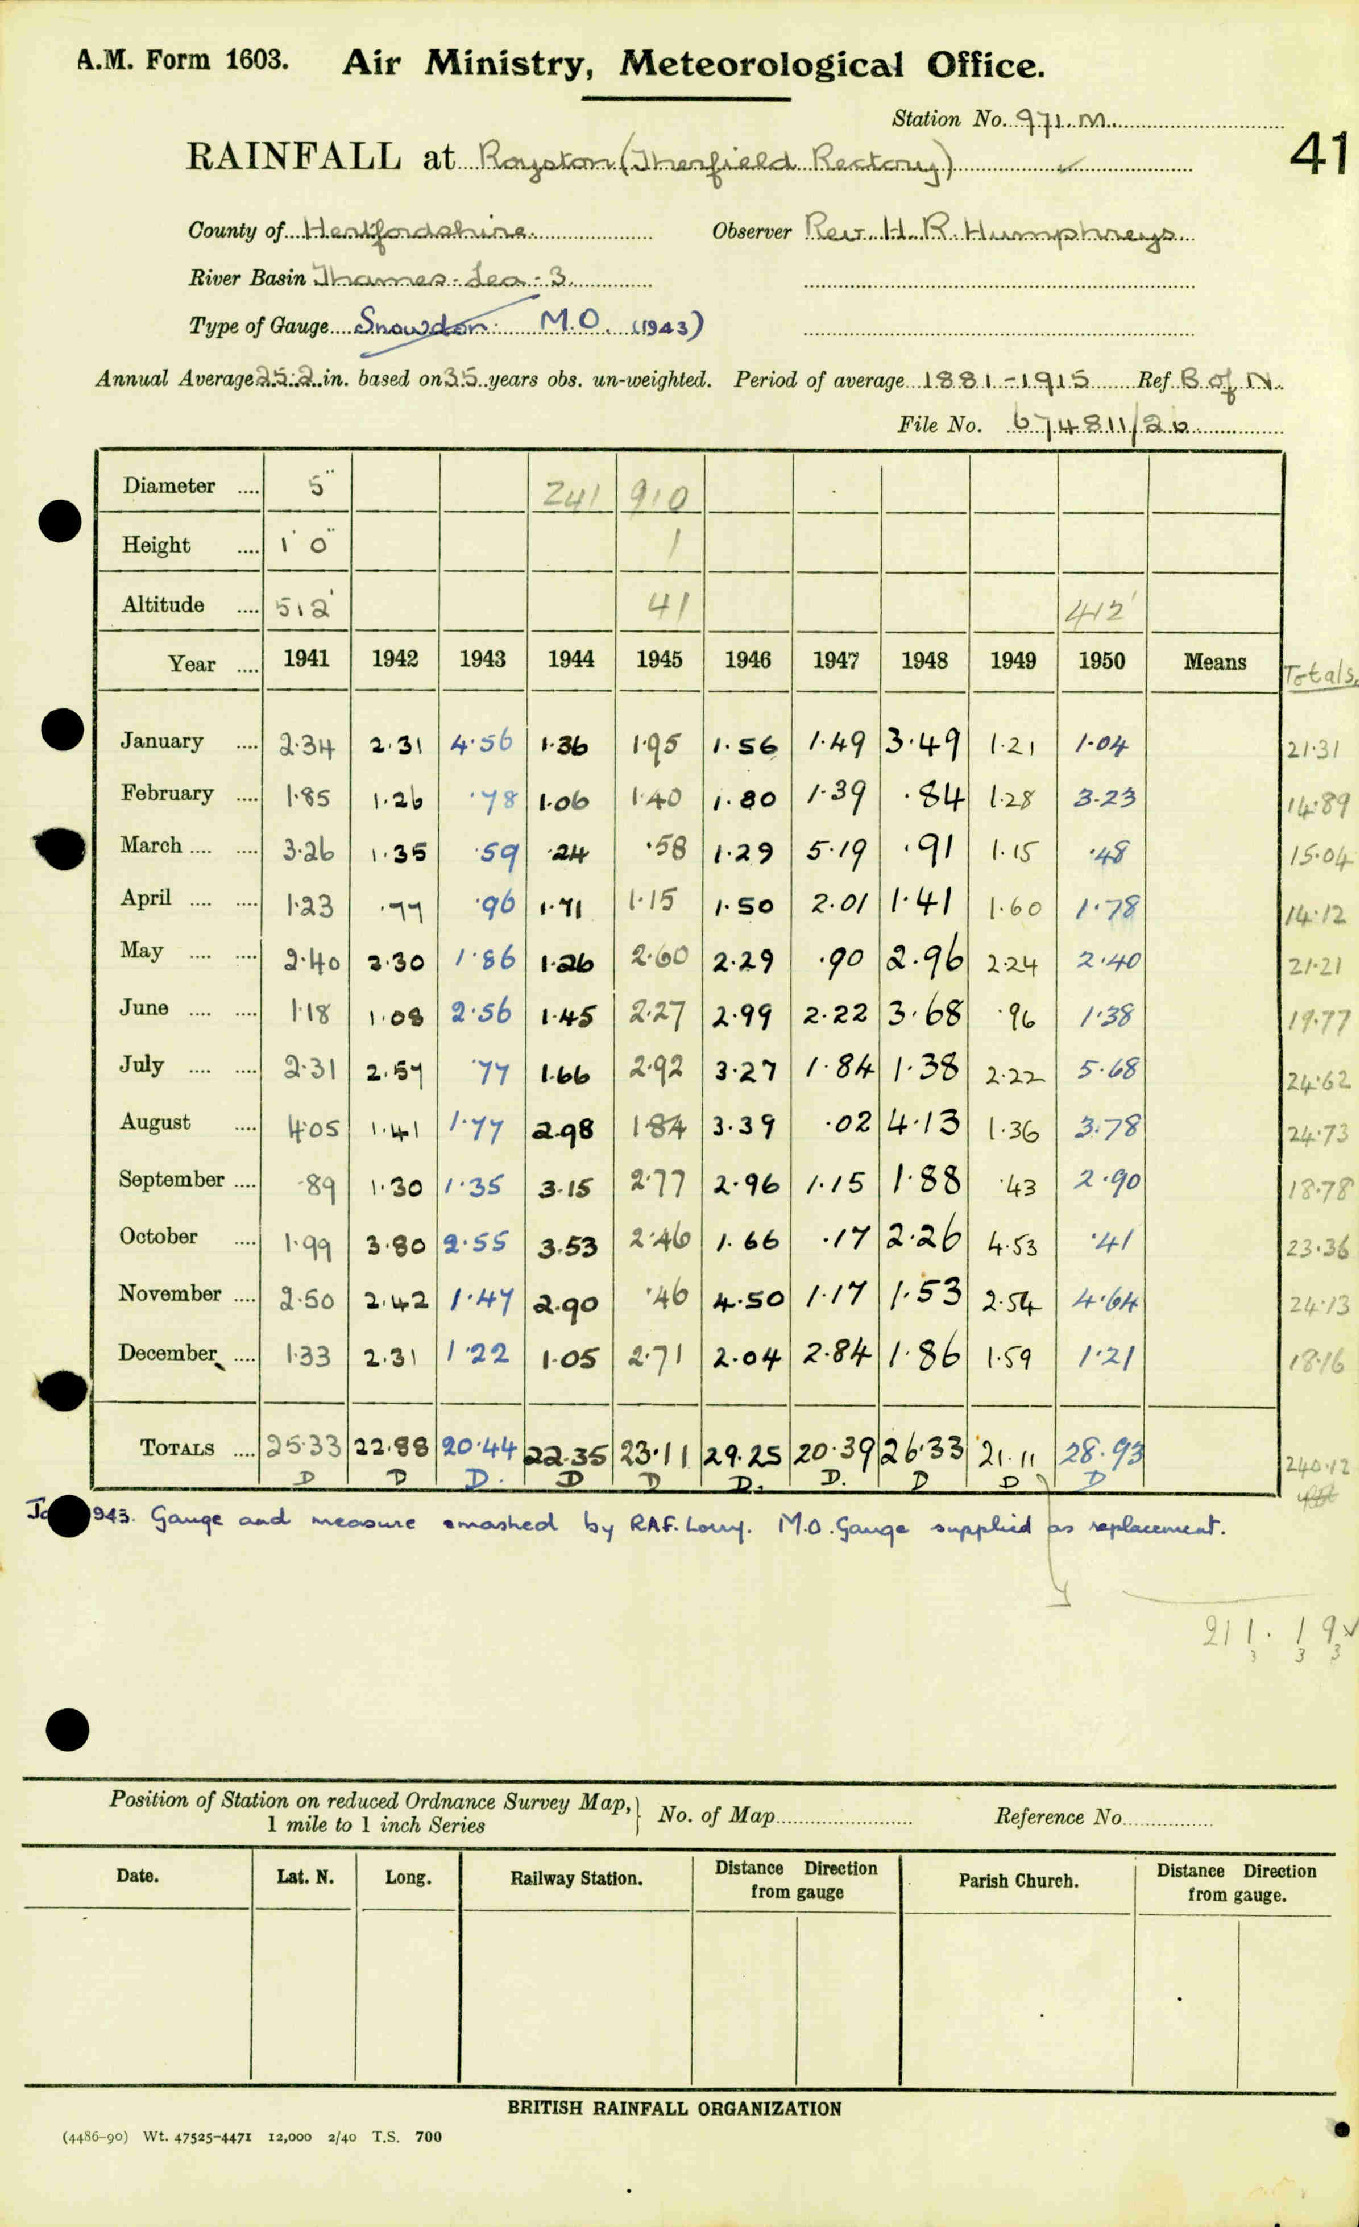 A.M. Form 1603. Air Ministry, Meteorological Office.
Station No. 971.M.
41
RAINFALL at Royston (Therfield Rectory) ✓
County of Hertfordshire. Observer Rev. H. R. Humphreys
River Basin Thames-Lea-3
Type of Gauge Snowdon M.O. (1943)
Annual Average 25.2 in. based on 35 years obs. un-weighted. Period of average 1881-1915 Ref B of N.
File No. 674811/26
Diameter .... 5" 241 910
Height .... 1' 0" 1
Altitude .... 512' 41 412'
Year .... 1941 1942 1943 1944 1945 1946 1947 1948 1949 1950 Means Totals.
January .... 2.34 2.31 4.56 1.36 1.95 1.56 1.49 3.49 1.21 1.04 21.31
February .... 1.85 1.26 .78 1.06 1.40 1.80 1.39 .84 1.28 3.23 14.89
March .... .... 3.26 1.35 .59 .24 .58 1.29 5.19 .91 1.15 .48 15.04
April .... .... 1.23 .77 .96 1.71 1.15 1.50 2.01 1.41 1.60 1.78 14.12
May .... .... 2.40 2.30 1.86 1.26 2.60 2.29 .90 2.96 2.24 2.40 21.21
June .... .... 1.18 1.08 2.56 1.45 2.27 2.99 2.22 3.68 .96 1.38 19.77
July .... .... 2.31 2.57 .77 1.66 2.92 3.27 1.84 1.38 2.22 5.68 24.62
August .... 4.05 1.41 1.77 2.98 1.84 3.39 .02 4.13 1.36 3.78 24.73
September .... .89 1.30 1.35 3.15 2.77 2.96 1.15 1.88 .43 2.90 18.78
October .... 1.99 3.80 2.55 3.53 2.46 1.66 .17 2.26 4.53 .41 23.36
November .... 2.50 2.42 1.47 2.90 .46 4.50 1.17 1.53 2.54 4.64 24.13
December .... 1.33 2.31 1.22 1.05 2.71 2.04 2.84 1.86 1.59 1.21 18.16
TOTALS .... 25.33 22.88 20.44 22.35 23.11 29.25 20.39 26.33 21.11 28.93 240.12
D D D. D D D. D. D D D
943. Gauge and measure smashed by RAF. Lorry. M.O. Gauge supplied as replacement.
211.19 ✓
3 3 3
Position of Station on reduced Ordnance Survey Map, 1 mile to 1 inch Series } No. of Map Reference No.
Date. Lat. N. Long. Railway Station. Distance Direction from gauge Parish Church. Distance Direction from gauge.
BRITISH RAINFALL ORGANIZATION
(4486-90) Wt. 47525-4471 12,000 2/40 T.S. 700